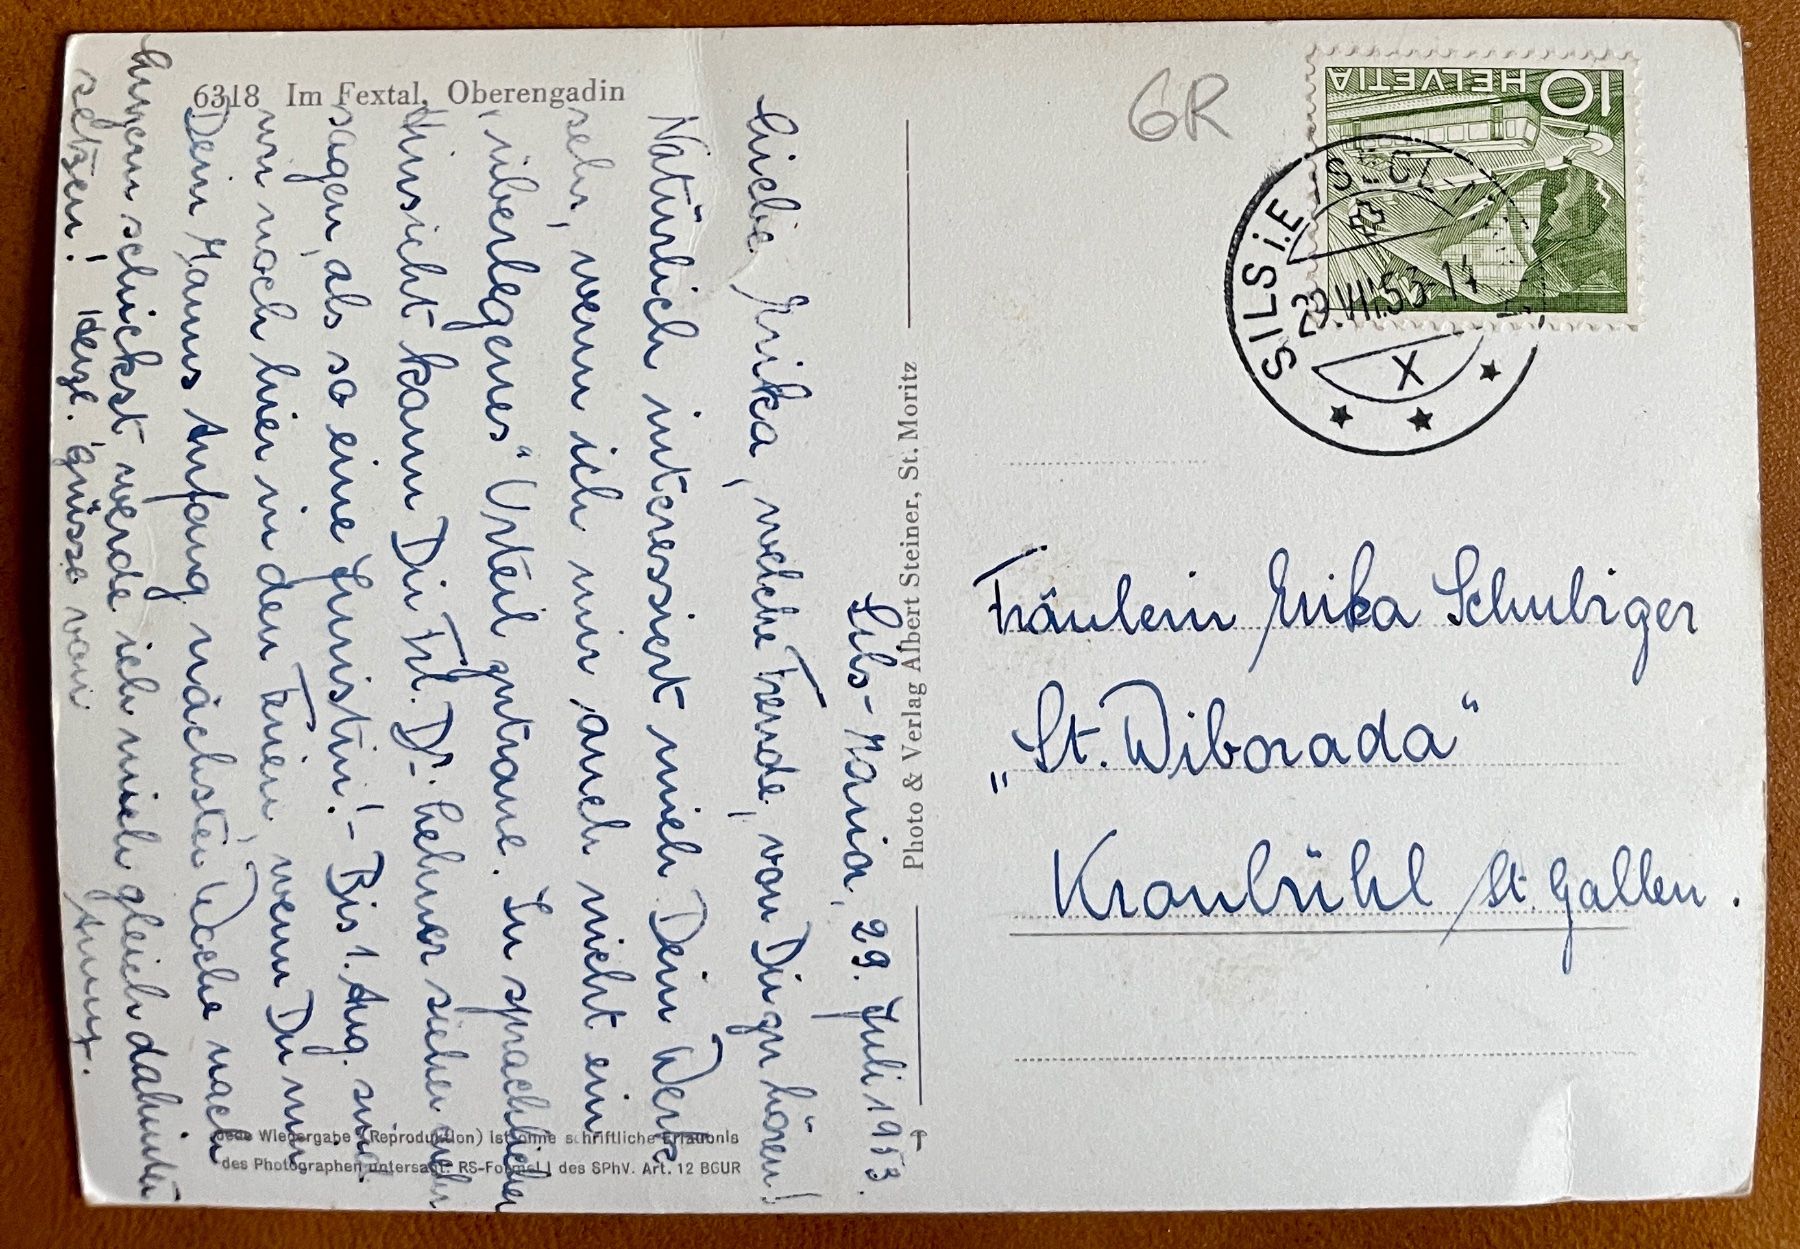 6318 Im Fextal, Oberengadin
GR
HELVETIA 10
SILS i.E. SEGL
29.VII.53-14
X
Sils-Maria, 29. Juli 1953.
Liebe Erika, welche Freude, von Dir zu hören!
Natürlich interessiert mich Dein Werk
sehr, wenn ich mir auch nicht ein
"überlegenes" Urteil zutraue. In sprachlicher
Hinsicht kann Dir Frl. Dr. Lehner sicher mehr
sagen, als so eine Juristin! - Bis 1. Aug. sind
wir noch hier in den Ferien, wenn Du mir
Dein Manus Anfang nächster Woche nach
Luzern schickst werde ich mich gleich dahinter
setzen! Herzl. Grüsse von
Photo & Verlag Albert Steiner, St. Moritz
Fräulein Erika Schubiger
"St. Wiborada"
Kronbühl / St. Gallen.
Jede Wiedergabe (Reproduktion) ist ohne schriftliche Erlaubnis
des Photographen untersagt. RS-Formel I des SPhV. Art. 12 BGUR